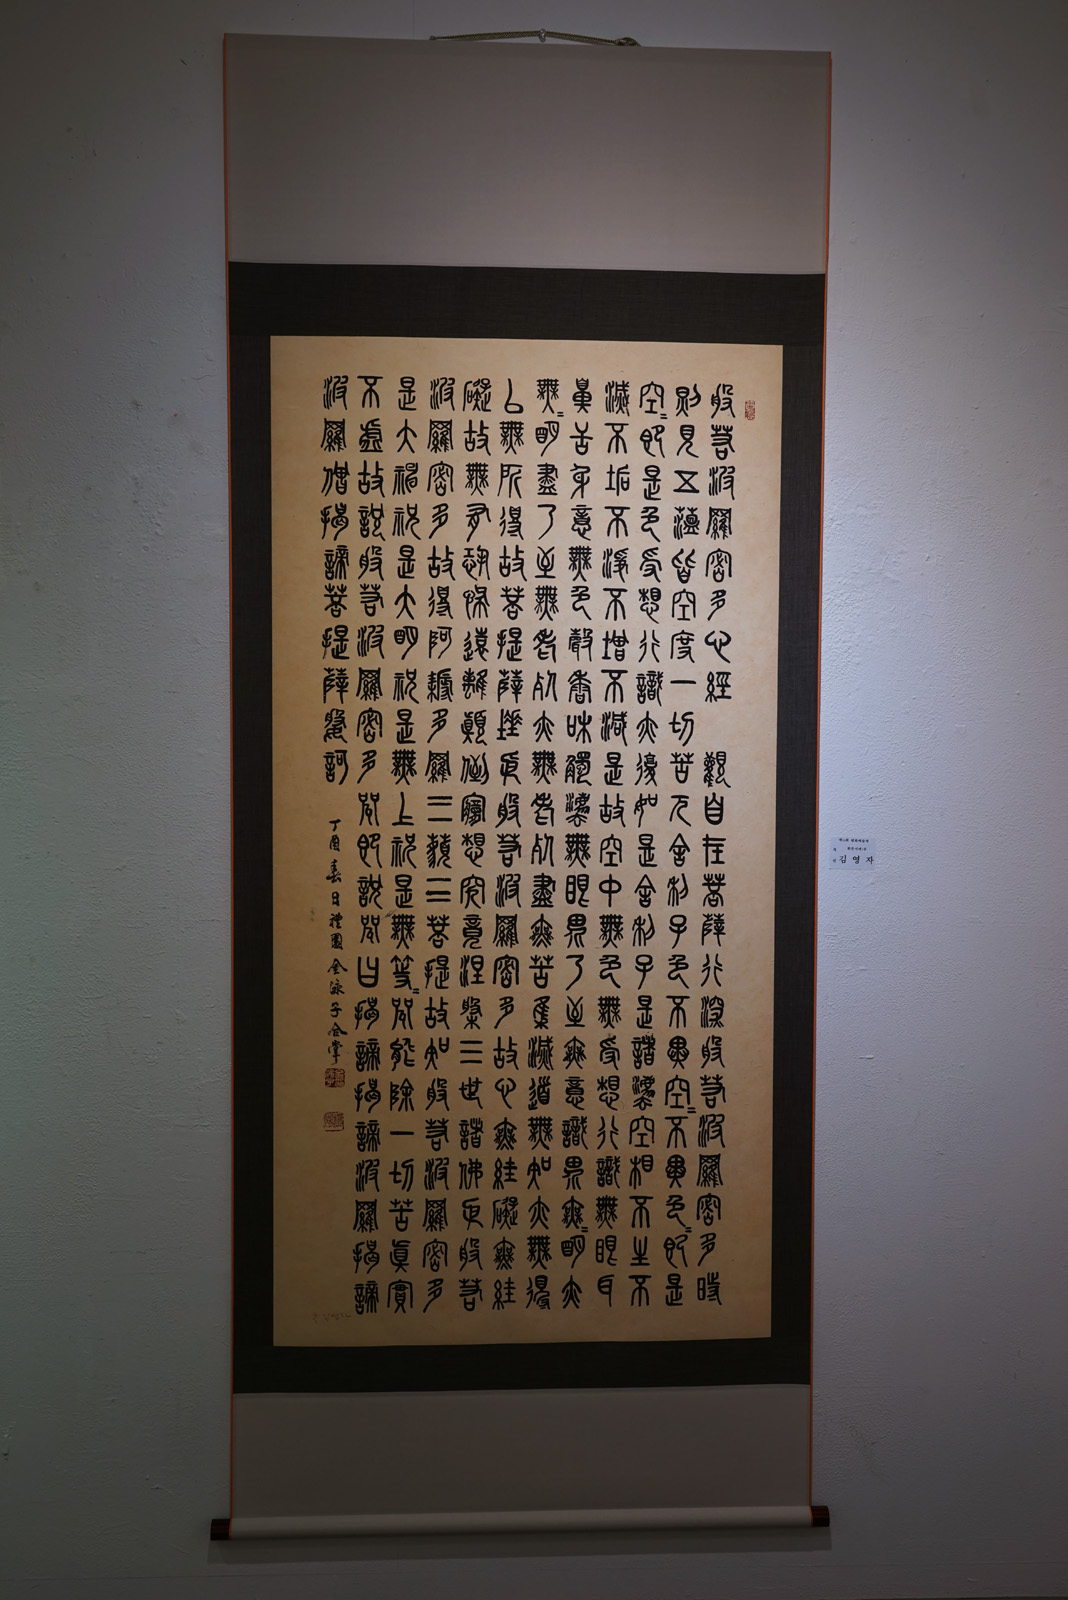 般若波羅密多心經 觀自在菩薩行深般若波羅密多時
照見五蘊皆空度一切苦厄舍利子色不異空〻不異色〻卽是
空〻卽是色受想行識亦復如是舍利子是諸法空相不生不
滅不垢不淨不增不減是故空中無色無受想行識無眼耳
鼻舌身意無色聲香味觸法無眼界乃至無意識界無〻明亦
無〻明盡乃至無老死亦無老死盡無苦集滅道無知亦無得
以無所得故菩提薩埵依般若波羅密多故心無絓礙無絓
礙故無有恐怖遠離顚倒夢想究竟涅槃三世諸佛依般若
波羅密多故得阿耨多羅三藐三菩提故知般若波羅密多
是大神呪是大明呪是無上呪是無等〻呪能除一切苦眞實
不虛故說般若波羅密多呪卽說呪曰揭諦揭諦波羅揭諦
波羅僧揭諦菩提薩婆訶
丁酉春日禮園金泳子合掌
김영자